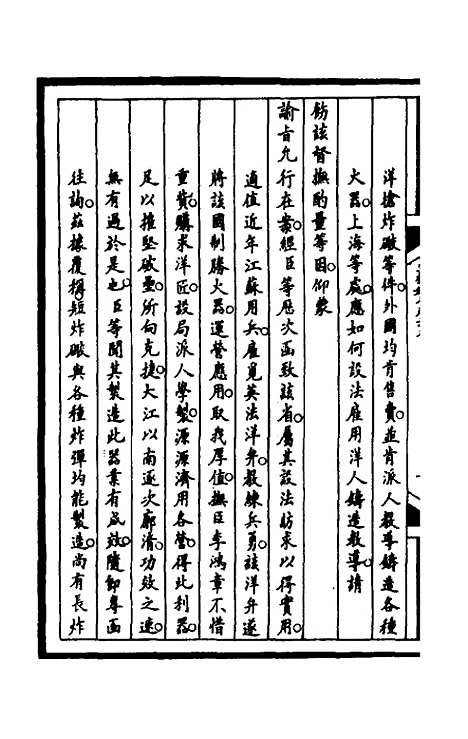 洋槍炸礮等件。外國均肯售賣。並肯派人教導鑄造各種
火器。上海等處。應如何設法雇用洋人鑄造教導。請
飭該督撫酌量等因。仰蒙
諭旨允行在案。經臣等歷次函致該省。屬其設法訪求以得實用。
適值近年江蘇用兵。雇覓英法洋弁。教練兵勇。該洋弁遂
將該國制勝火器。運營應用。取我厚值。撫臣李鴻章不惜
重貲。購求洋匠。設局派人學製。源源濟用各營。得此利器。
足以摧堅破壘。所向克捷。大江以南逐次廓清。功效之速。
無有過於是也。臣等聞其製造此器。業有成效。隨即專函
往詢。茲據覆稱。短炸礮與各種炸彈。均能製造。尚有長炸